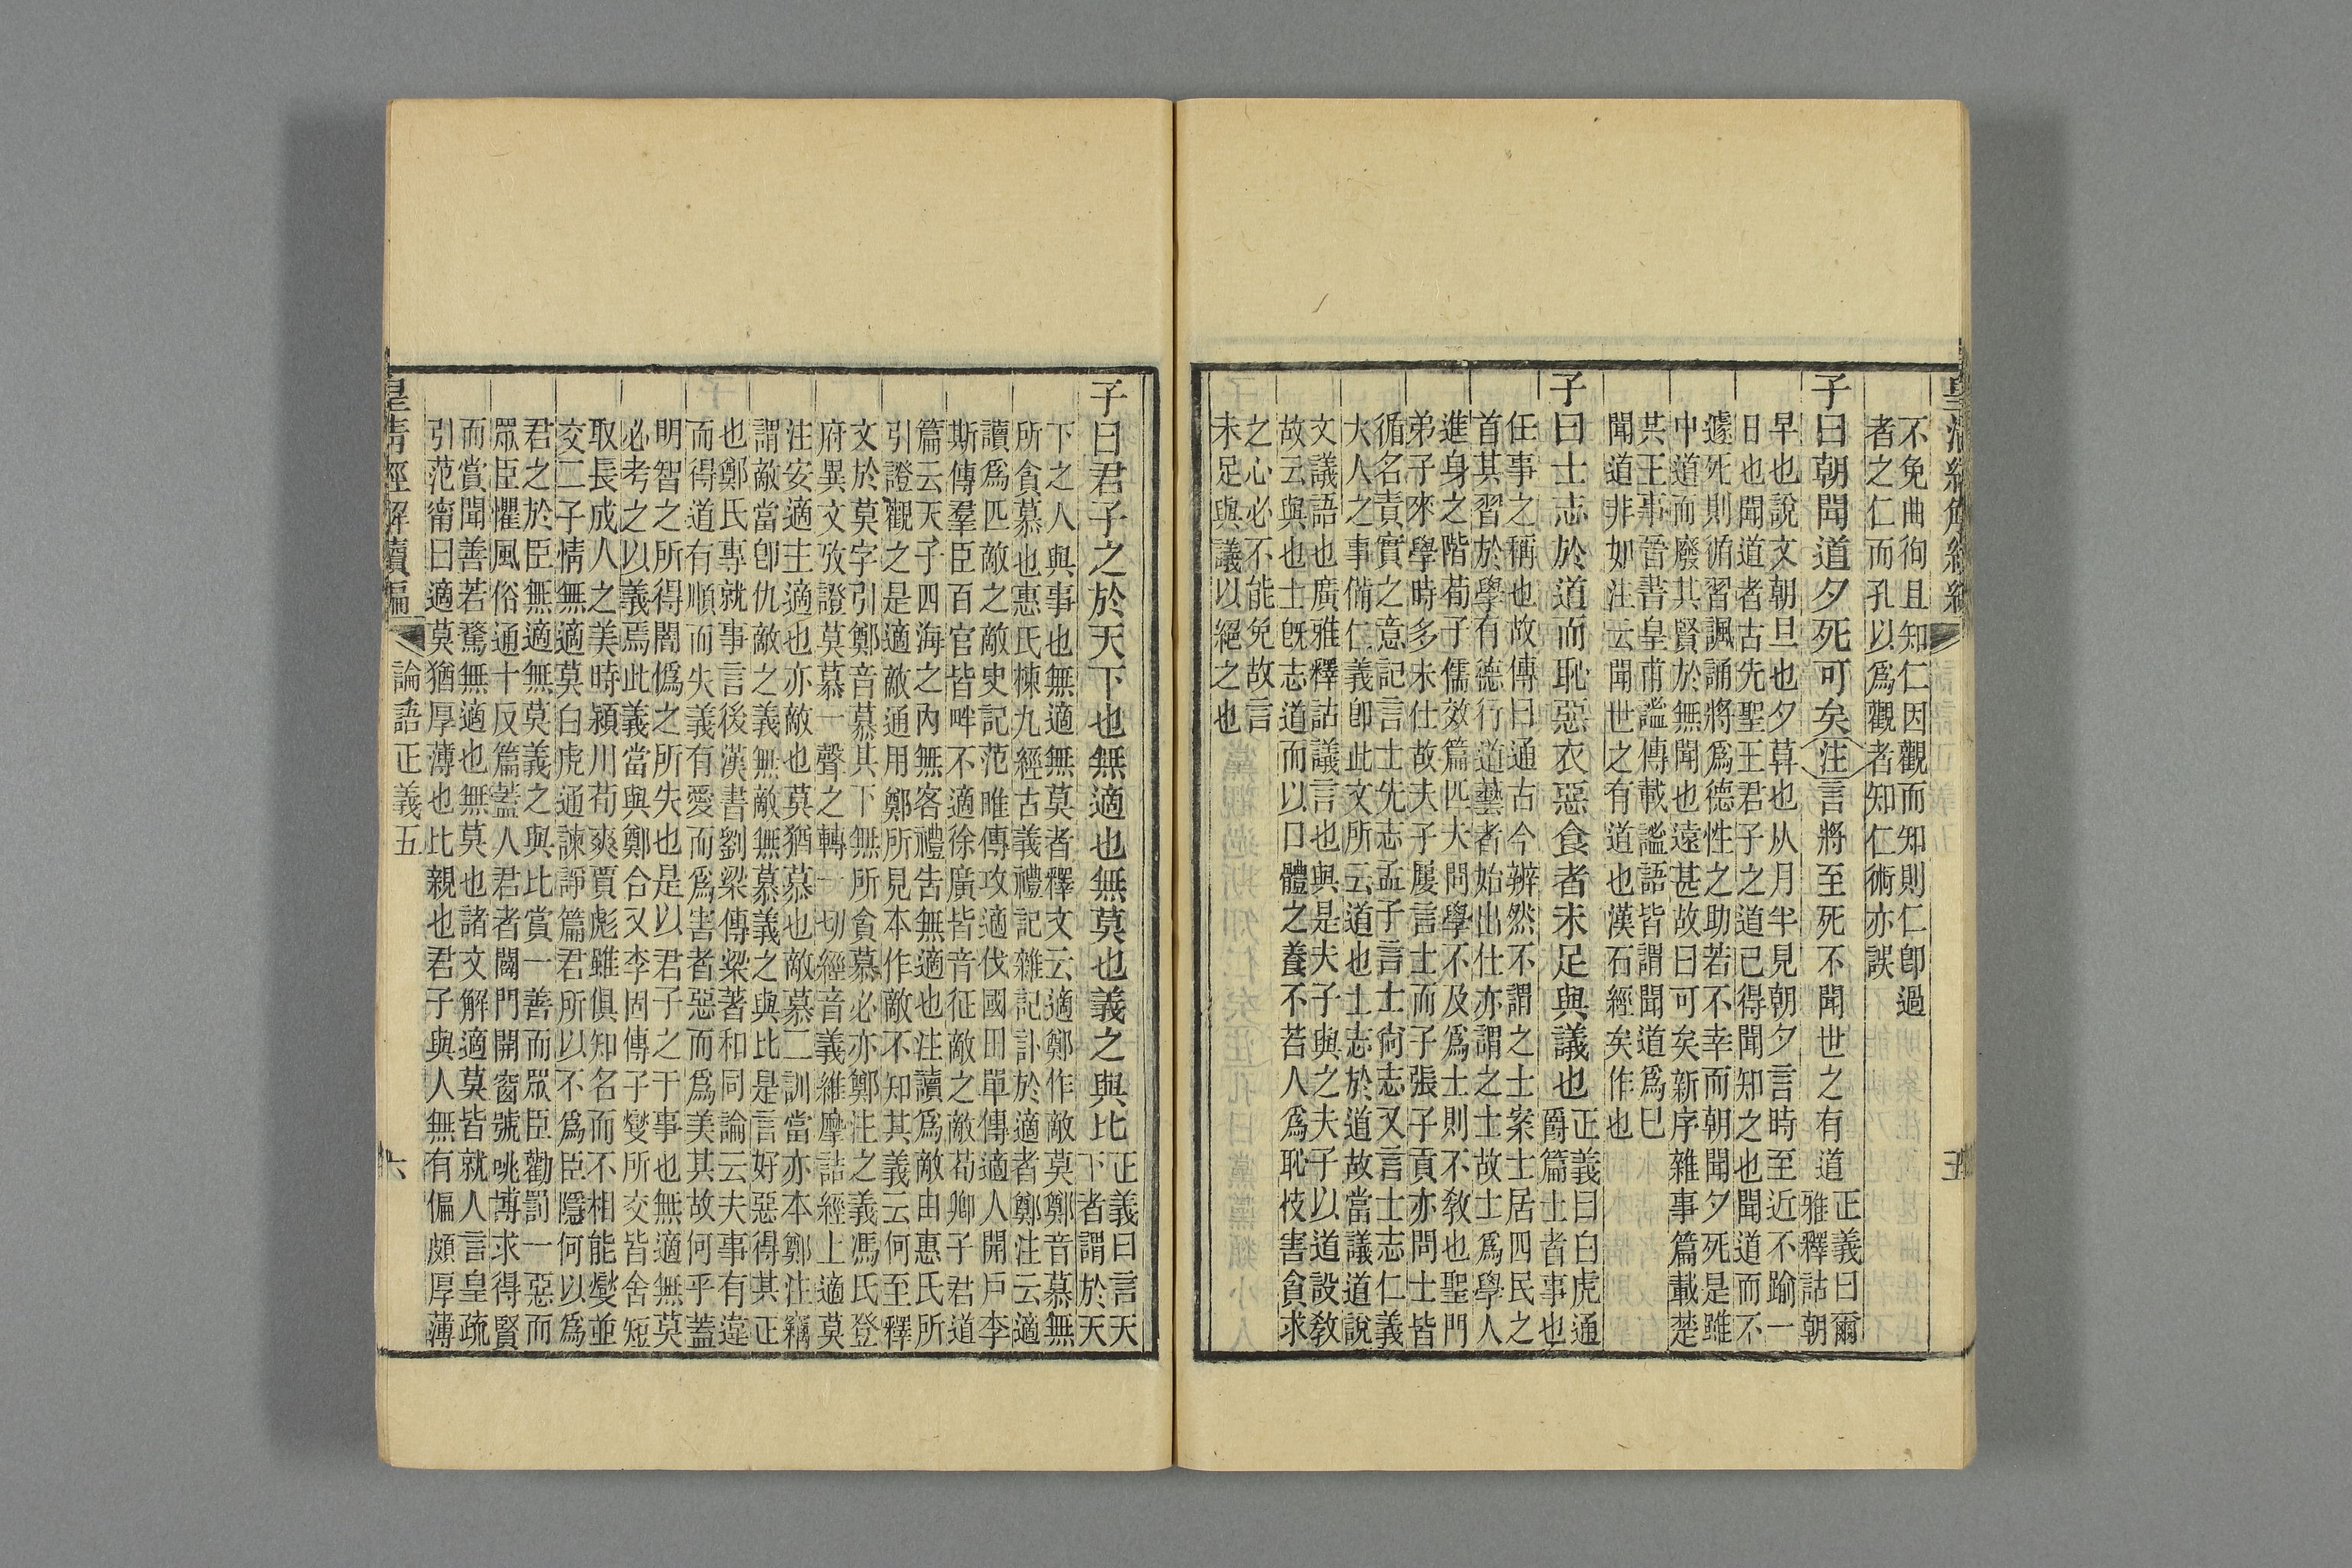 不免曲徇且知仁因觀而知則仁卽過
者之仁而孔以爲觀者知仁術亦誤
子曰朝聞道夕死可矣注言將至死不聞世之有道
正義曰爾
雅釋詁朝
早也說文朝旦也夕莫也从月半見朝夕言時至近不踰一
旧也聞道者古先聖王君子之道已得聞知之也聞道而不
遽死則循習諷誦將爲德性之助若不幸而朝聞夕死是雖
中道而廢其賢於無聞也遠甚故曰可矣新序雜事篇載楚
共王事晉書皇甫謐傳載謐語皆謂聞道爲已
聞道非如注云聞世之有道也漢石經矣作也
子曰士志於道而恥惡衣惡食者未足與議也
正義曰白虎通
爵篇士者事也
任事之稱也故傳曰通古今辨然不謂之士案士居四民之
首其習於學有德行道藝者始出仕亦謂之士故士爲學人
進身之階荀子儒效篇匹夫問學不及爲士則不敎也聖門
弟子來學時多未仕故夫子屢言士而子張子貢亦問士皆
循名責實之意記言士先志孟子言士尙志又言士志仁義
大人之事備仁義卽此文所云道也士志於道故當議道說
文議語也廣雅釋詁議言也與是夫子與之夫子以道設敎
故云與也士旣志道而以口體之養不若人爲恥忮害貪求
之心必不能免故言
未足與議以絕之也
子曰君子之於天下也無適也無莫也義之與比
正義曰言天
下者謂於天
下之人與事也無適無莫者釋文云適鄭作敵莫鄭音慕無
所貪慕也惠氏棟九經古義禮記雜記訃於適者鄭注云適
讀爲匹敵之敵史記范睢傳攻適伐國田單傳適人開戶李
斯傳羣臣百官皆畔不適徐廣皆音征敵之敵荀卿子君道
篇云天子四海之內無客禮告無適也注讀爲敵由惠氏所
引證觀之是適敵通用鄭所見本作敵不知其義云何至釋
文於莫字引鄭音慕其下無所貪慕必亦鄭注之義馮氏登
府異文攷證莫慕一聲之轉一切經音義維摩詰經上適莫
注安適主適也亦敵也莫猶慕也敵慕二訓當亦本鄭注竊
謂敵當卽仇敵之義無敵無慕義之與比是言好惡得其正
也鄭氏專就事言後漢書劉梁傳梁著和同論云夫事有違
而得道有順而失義有愛而爲害者惡而爲美其故何乎蓋
明智之所得闇僞之所失也是以君子之于事也無適無莫
必考之以義焉此義當與鄭合又李固傳子燮所交皆舍短
取長成人之美時潁川荀爽賈彪雖俱知名而不相能燮並
交二子情無適莫白虎通諫諍篇君所以不爲臣隱何以爲
君之於臣無適無莫義之與比賞一善而眾臣勸罰一惡而
眾臣懼風俗通十反篇蓋人君者闢門開窗號咷博求得賢
而賞聞善若驚無適也無莫也諸文解適莫皆就人言皇疏
引范甯曰適莫猶厚薄也比親也君子與人無有偏頗厚薄
皇淸經解續編 論語正義五 六